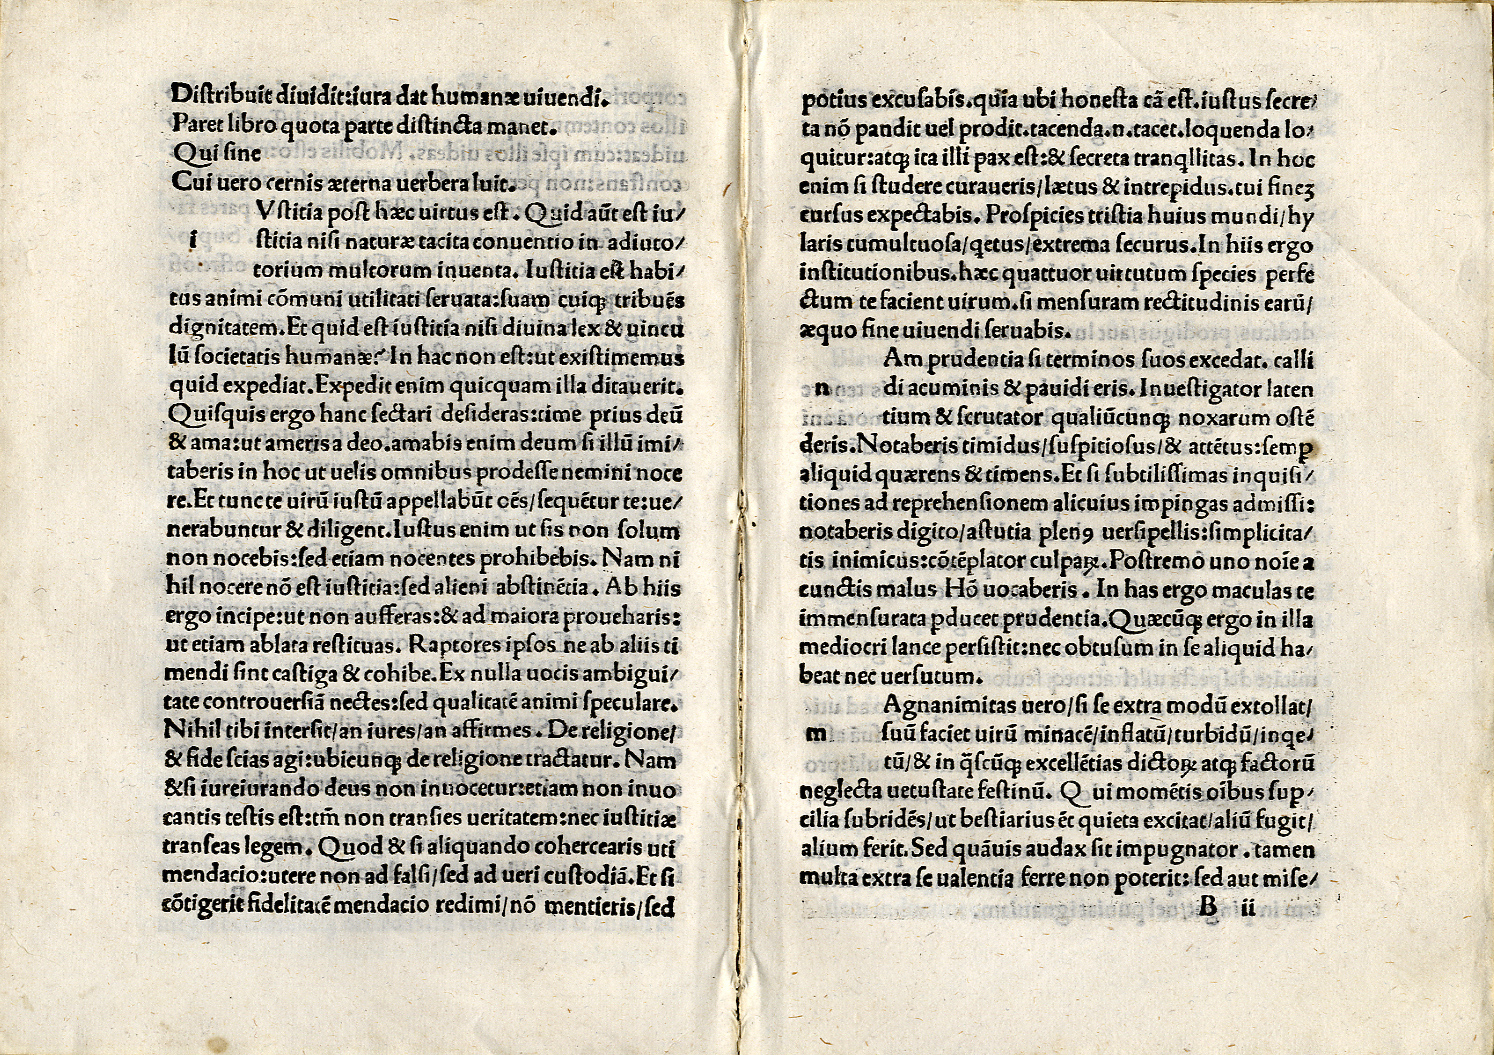 Distribuit diuidit:iura dat humanæ uiuendi.
Paret libro quota parte distincta manet.
Qui sine
Cui uero cernis æterna uerbera luit.
Vstitia post hæc uirtus est. Quid aūt est iu/
i stitia nisi naturæ tacita conuentio in adiuto/
torium multorum inuenta. Iustitia est habi/
tus animi cōmuni utilitati seruata:suam cuiqꝫ tribuēs
dignitatem.Et quid est iustitia nisi diuina lex & uincu
lū societatis humanæ? In hac non est:ut existimemus
quid expediat.Expedit enim quicquam illa dictauerit.
Quisquis ergo hanc sectari desideras:time prius deū
& ama:ut ameris a deo.amabis enim deum si illū imi/
taberis in hoc ut uelis omnibus prodesse nemini noce
re.Et tunc te uirū iustū appellabūt oēs/sequētur te:ue/
nerabuntur & diligent.Iustus enim ut sis non solum
non nocebis:sed etiam nocentes prohibebis. Nam ni
hil nocere nō est iustitia:sed alieni abstinētia. Ab hiis
ergo incipe:ut non aufferas:& ad maiora proueharis:
ut etiam ablata restituas. Raptores ipsos ne ab aliis ti
mendi sint castiga & cohibe. Ex nulla uocis ambigui/
tate controuersiā nectes:sed qualitatē animi speculare.
Nihil tibi intersit/an iures/an affirmes. De religione/
& fide scias agi:ubicunqꝫ de religione tractatur. Nam
&si iureiurando deus non inuocetur:etiam non inuo
cantis testis est:tm̄ non transies ueritatem:nec iustitiæ
transeas legem. Quod & si aliquando cohercearis uti
mendacio:utere non ad falsi/sed ad ueri custodiā.Et si
cōtigerit fidelitatē mendacio redimi/nō mentieris/sed
potius excusabis.quia ubi honesta cā est.iustus secre/
ta nō pandit uel prodit.tacenda.n.tacet.loquenda lo/
quitur:atqꝫ ita illi pax est:& secreta tranqllitas. In hoc
enim si studere curaueris/lætus & intrepidus.tui fineꝫ
cursus expectabis. Prospicies tristia huius mundi/hy
laris tumultuosa/qetus/extrema securus.In hiis ergo
institutionibus.hæc quattuor uirtutum species perfe
ctum te facient uirum.si mensuram rectitudinis earū/
æquo fine uiuendi seruabis.
Am prudentia si terminos suos excedat. calli
n di acuminis & pauidi eris. Inuestigator laten
tium & scrutator qualiūcunqꝫ noxarum ostē
deris.Notaberis timidus/suspitiosus/& attētus:semꝑ
aliquid quærens & timens.Et si subtilissimas inquisi/
tiones ad reprehensionem alicuius impingas admissi:
notaberis digito/astutia plenꝯ uersipellis:simplicita/
tis inimicus:cōtēplator culpaꝝ.Postremo uno noīe a
cunctis malus Hō uocaberis. In has ergo maculas te
immensurata ꝓducet prudentia.Quæcūqꝫ ergo in illa
mediocri lance persistit:nec obtusum in se aliquid ha/
beat nec uersutum.
Agnanimitas uero/si se extra modū extollat/
m suū faciet uirū minacē/inflatū/turbidū/inqe/
tū/& in q̄scūqꝫ excellētias dictoꝝ atqꝫ factorū
neglecta uetustate festinū. Qui momētis oībus suꝑ/
cilia subridēs/ut bestiarius ēt quieta excitat/aliū fugit/
alium ferit. Sed quāuis audax sit impugnator. tamen
multa extra se ualentia ferre non poterit: sed aut mise/
B ii